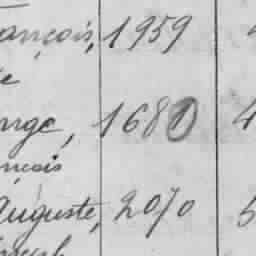 ançois, 1959
e
nge, 1680 4
nçois
Auguste, 2070 5